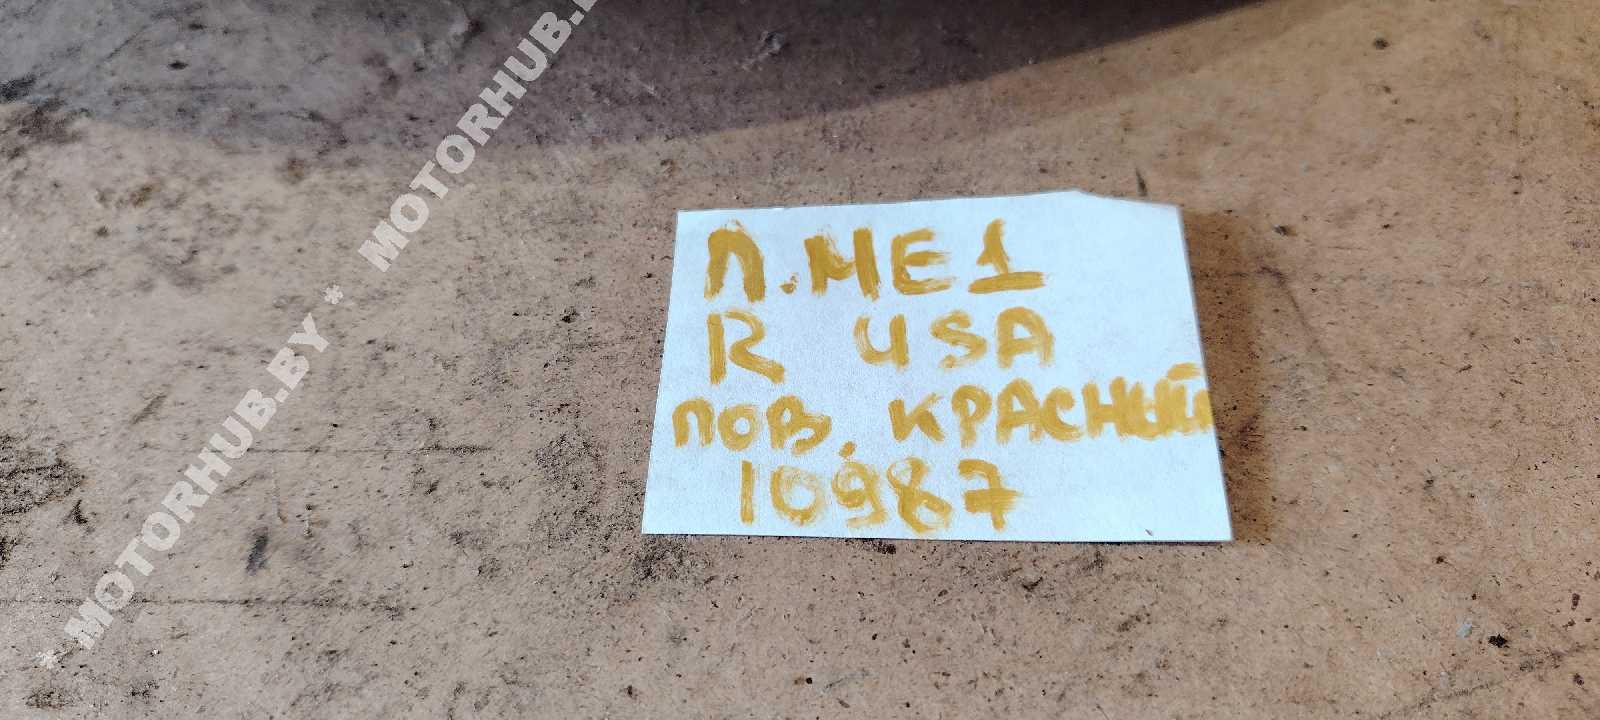 Л.МЕ1
R USA
ПОВ. КРАСНЫЙ
10987
* MOTORHUB.BY * MOTORHUB.